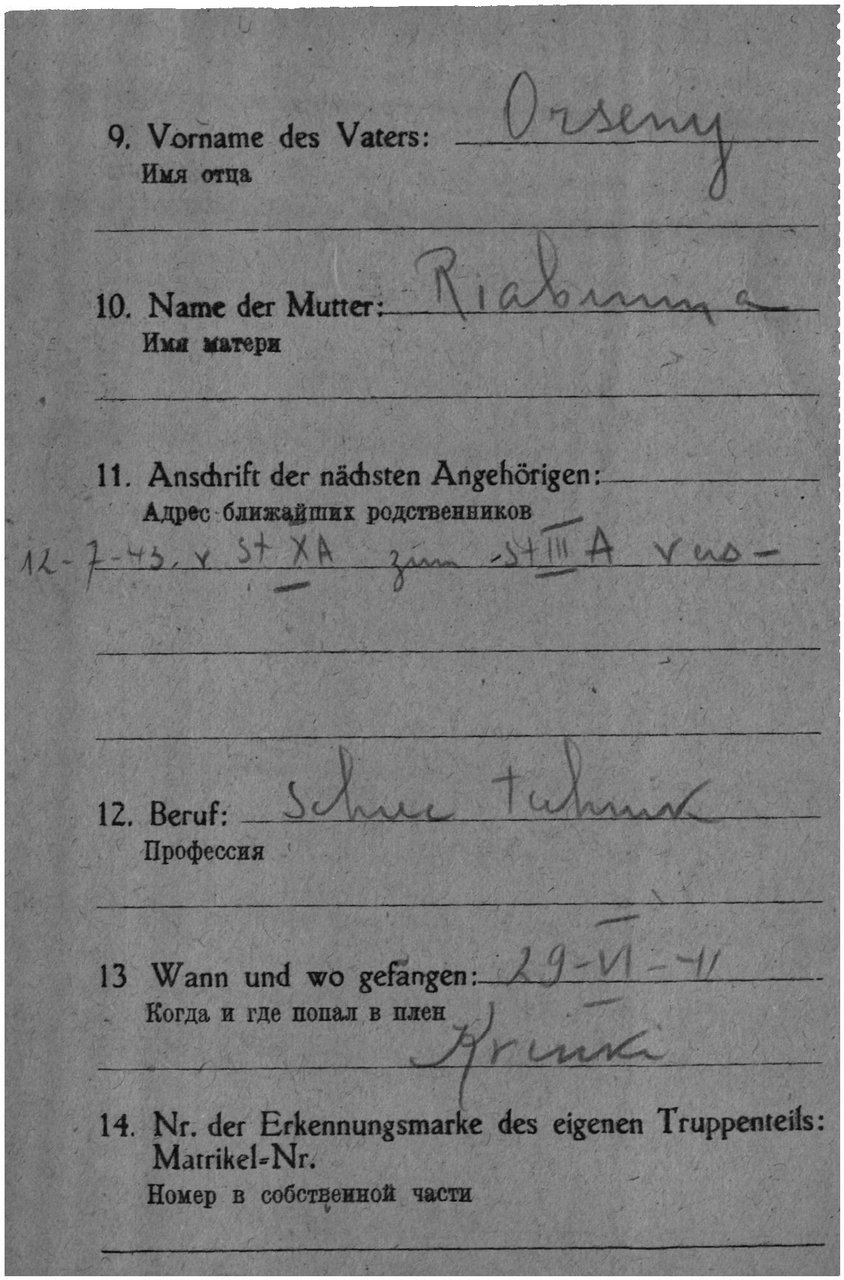 9. Vorname des Vaters: Orseny
Имя отца
10. Name der Mutter: Riabinina
Имя матери
11. Anschrift der nächsten Angehörigen:
Адрес ближайших родственников
12-7-43. v St XA zum St III A vers-
12. Beruf:
Профессия
13 Wann und wo gefangen: 29-VI-41
Когда и где попал в плен
Krinki
14. Nr. der Erkennungsmarke des eigenen Truppenteils:
Matrikel-Nr.
Номер в собственной части